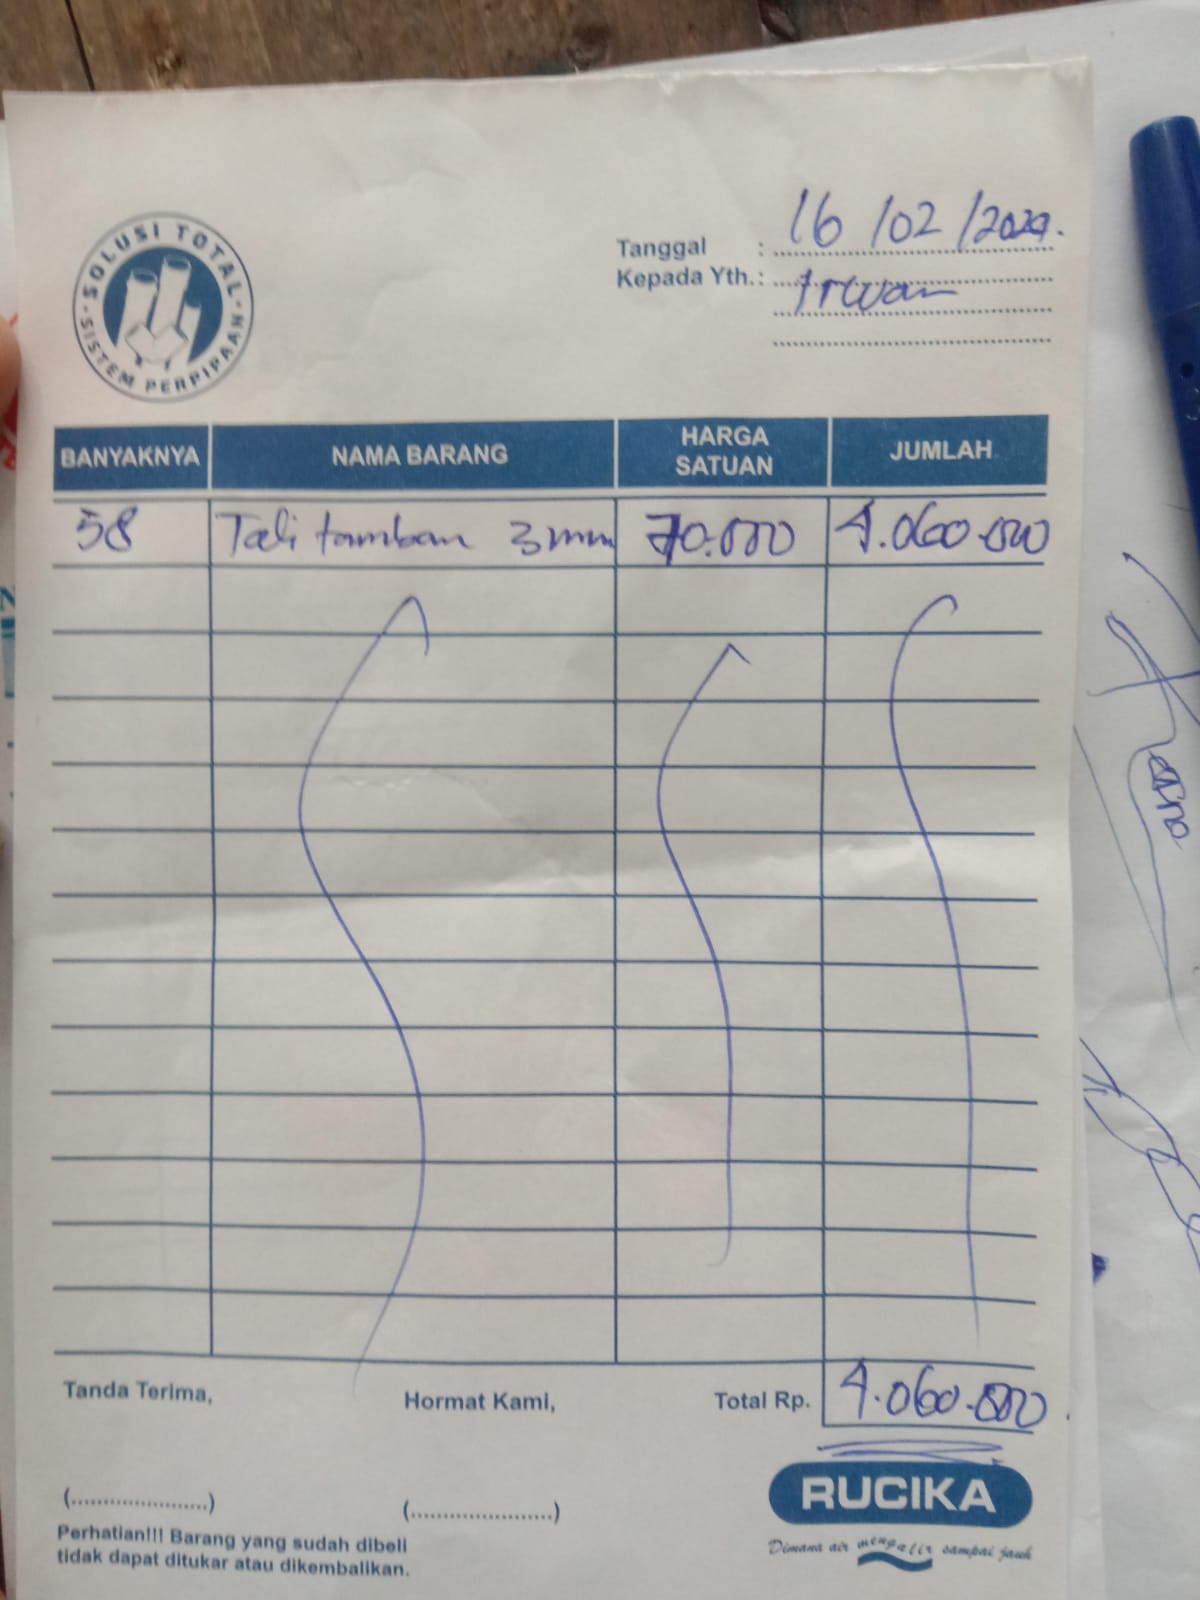 SOLUSI TOTAL
SISTEM PERPIPAAN
Tanggal : 16/02/2024.
Kepada Yth.: Irwan
BANYAKNYA NAMA BARANG HARGA SATUAN JUMLAH
58 Tali tamban 3mm 70.000 4.060.000
Tanda Terima, Hormat Kami, Total Rp. 4.060.000
(......................) (......................)
RUCIKA
Perhatian!!! Barang yang sudah dibeli
tidak dapat ditukar atau dikembalikan.
Dimana air mengalir sampai jauh